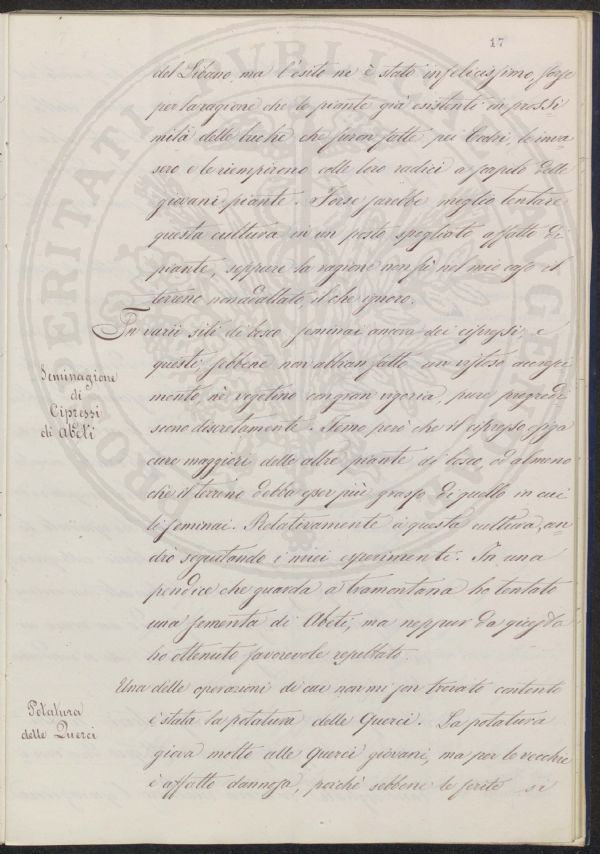 17
del Libano, ma l'esito ne è stato infelicissimo, forse
per la ragione che le piante già esistenti in prossi=
mità delle buche che furon fatte pei Cedri, le inva=
sero e le riempirono colle loro radici a scapito delle
giovani piante. Forse sarebbe meglio tentare
questa cultura in un posto spogliato affatto di
piante, seppure la ragione non fù nel mio caso il
terreno non adattato, il che ignoro.
In varii siti di bosco seminai ancora dei cipressi, e
questi sebbene non abbian fatto un vistoso accresci
mento, nè vegetino con gran vigoria, pure progredi
scono discretamente. Temo però che il cipresso esiga
cure maggiori delle altre piante di bosco, od almeno
che il terreno debba esser più grasso di quello in cui
li seminai. Relativamente a questa cultura, an=
drò seguitando i miei esperimenti. In una
pendice che guarda a tramontana ho tentato
una sementa di Abeti, ma neppur da questa
ho ottenuto favorevole resultato.
Una delle operazioni di cui non mi son trovato contento
è stata la potatura delle Querci. La potatura
giova molto alle Querci giovani, ma per le vecchie
è affatto dannosa, perchè sebbene le ferite si
Seminagione
di
Cipressi
di Abeti
Potatura
delle Querci
PROSPERITATI PVBLICAE AVGENDAE